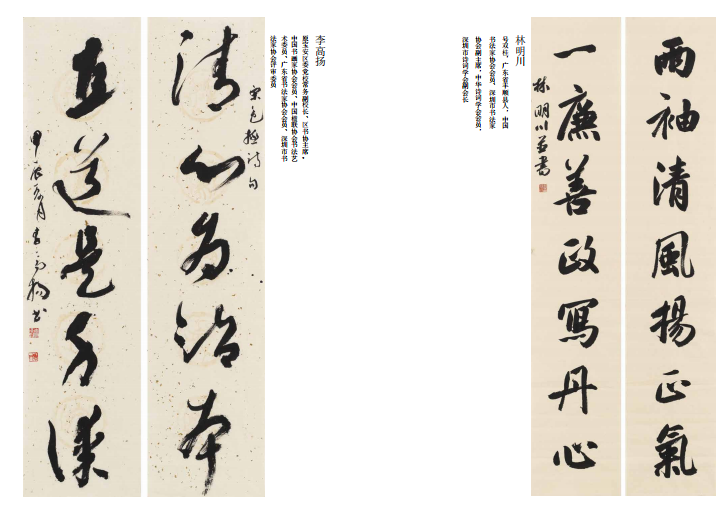 兩袖清風揚正氣
一廉善政寫丹心
林明川並書
林明川
号双桂，广东省丰顺县人，中国
书法家协会会员，深圳市书法家
协会副主席，中华诗词学会会员，
深圳市诗词学会副会长
李高扬
原宝安区委党校常务副校长、区书协主席，
中国书画家协会会员，中国楹联协会书法艺
术委员，广东省书法家协会会员，深圳市书
法家协会评审委员
宋包拯诗句
清心为治本
直道是身谋
甲辰夏月李高扬书